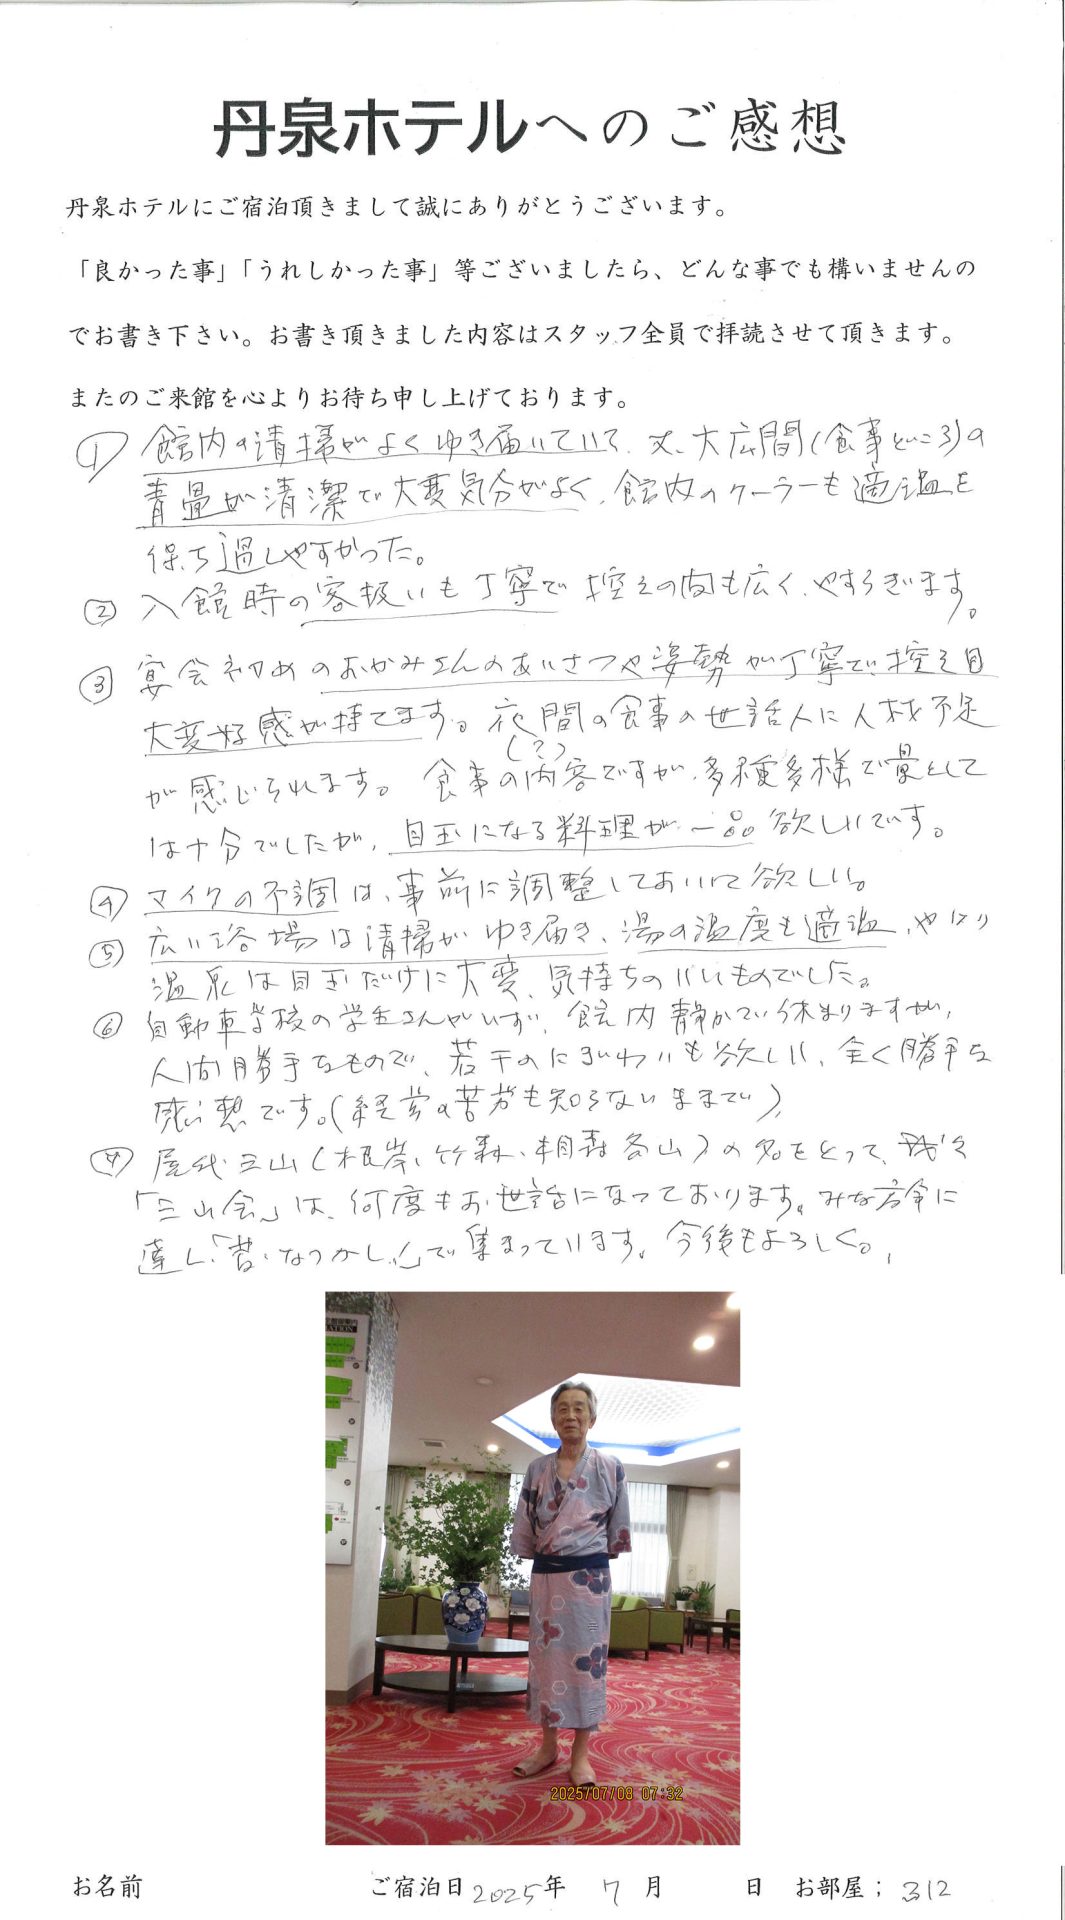 丹泉ホテルへのご感想
丹泉ホテルにご宿泊頂きまして誠にありがとうございます。
「良かった事」「うれしかった事」等ございましたら、どんな事でも構いませんの
でお書き下さい。お書き頂きました内容はスタッフ全員で拝読させて頂きます。
またのご来館を心よりお待ち申し上げております。
① 館内の清掃がよくゆき届いていて、又、大広間(食事どころ)の
青畳が清潔で大変気分がよく、館内のクーラーも適温を
保ち過しやすかった。
② 入館時の客扱いも丁寧で控えの間も広く、やすらぎます。
③ 宴会初めのおかみさんのあいさつや姿勢が丁寧で、控え目
大変好感が持てます。夜間の食事の世話人に人材不足
(?)
が感じられます。食事の内容ですが、多種多様で量として
は十分でしたが、目玉になる料理が一品欲しいです。
④ マイクの不調は、事前に調整しておいて欲しい。
⑤ 広い浴場は清掃がゆき届き、湯の温度も適温、やはり
温泉は目玉だけに大変、気持ちのいいものでした。
⑥ 自動車学校の学生さんがいず、館内静かで休まりますが、
人間勝手なもので、若干のにぎわいも欲しい、全く勝手な
感想です。(経営の苦労も知らないままで)
屋代三山(根岸、竹森、相森各山)の名をとって、我々
「三山会」は、何度もお世話になっております。みな高令に
達し、「昔なつかし心」で集まっています。今後もよろしく。
2025/07/08 07:32
お名前 ご宿泊日 2025年 7月 日 お部屋; 312